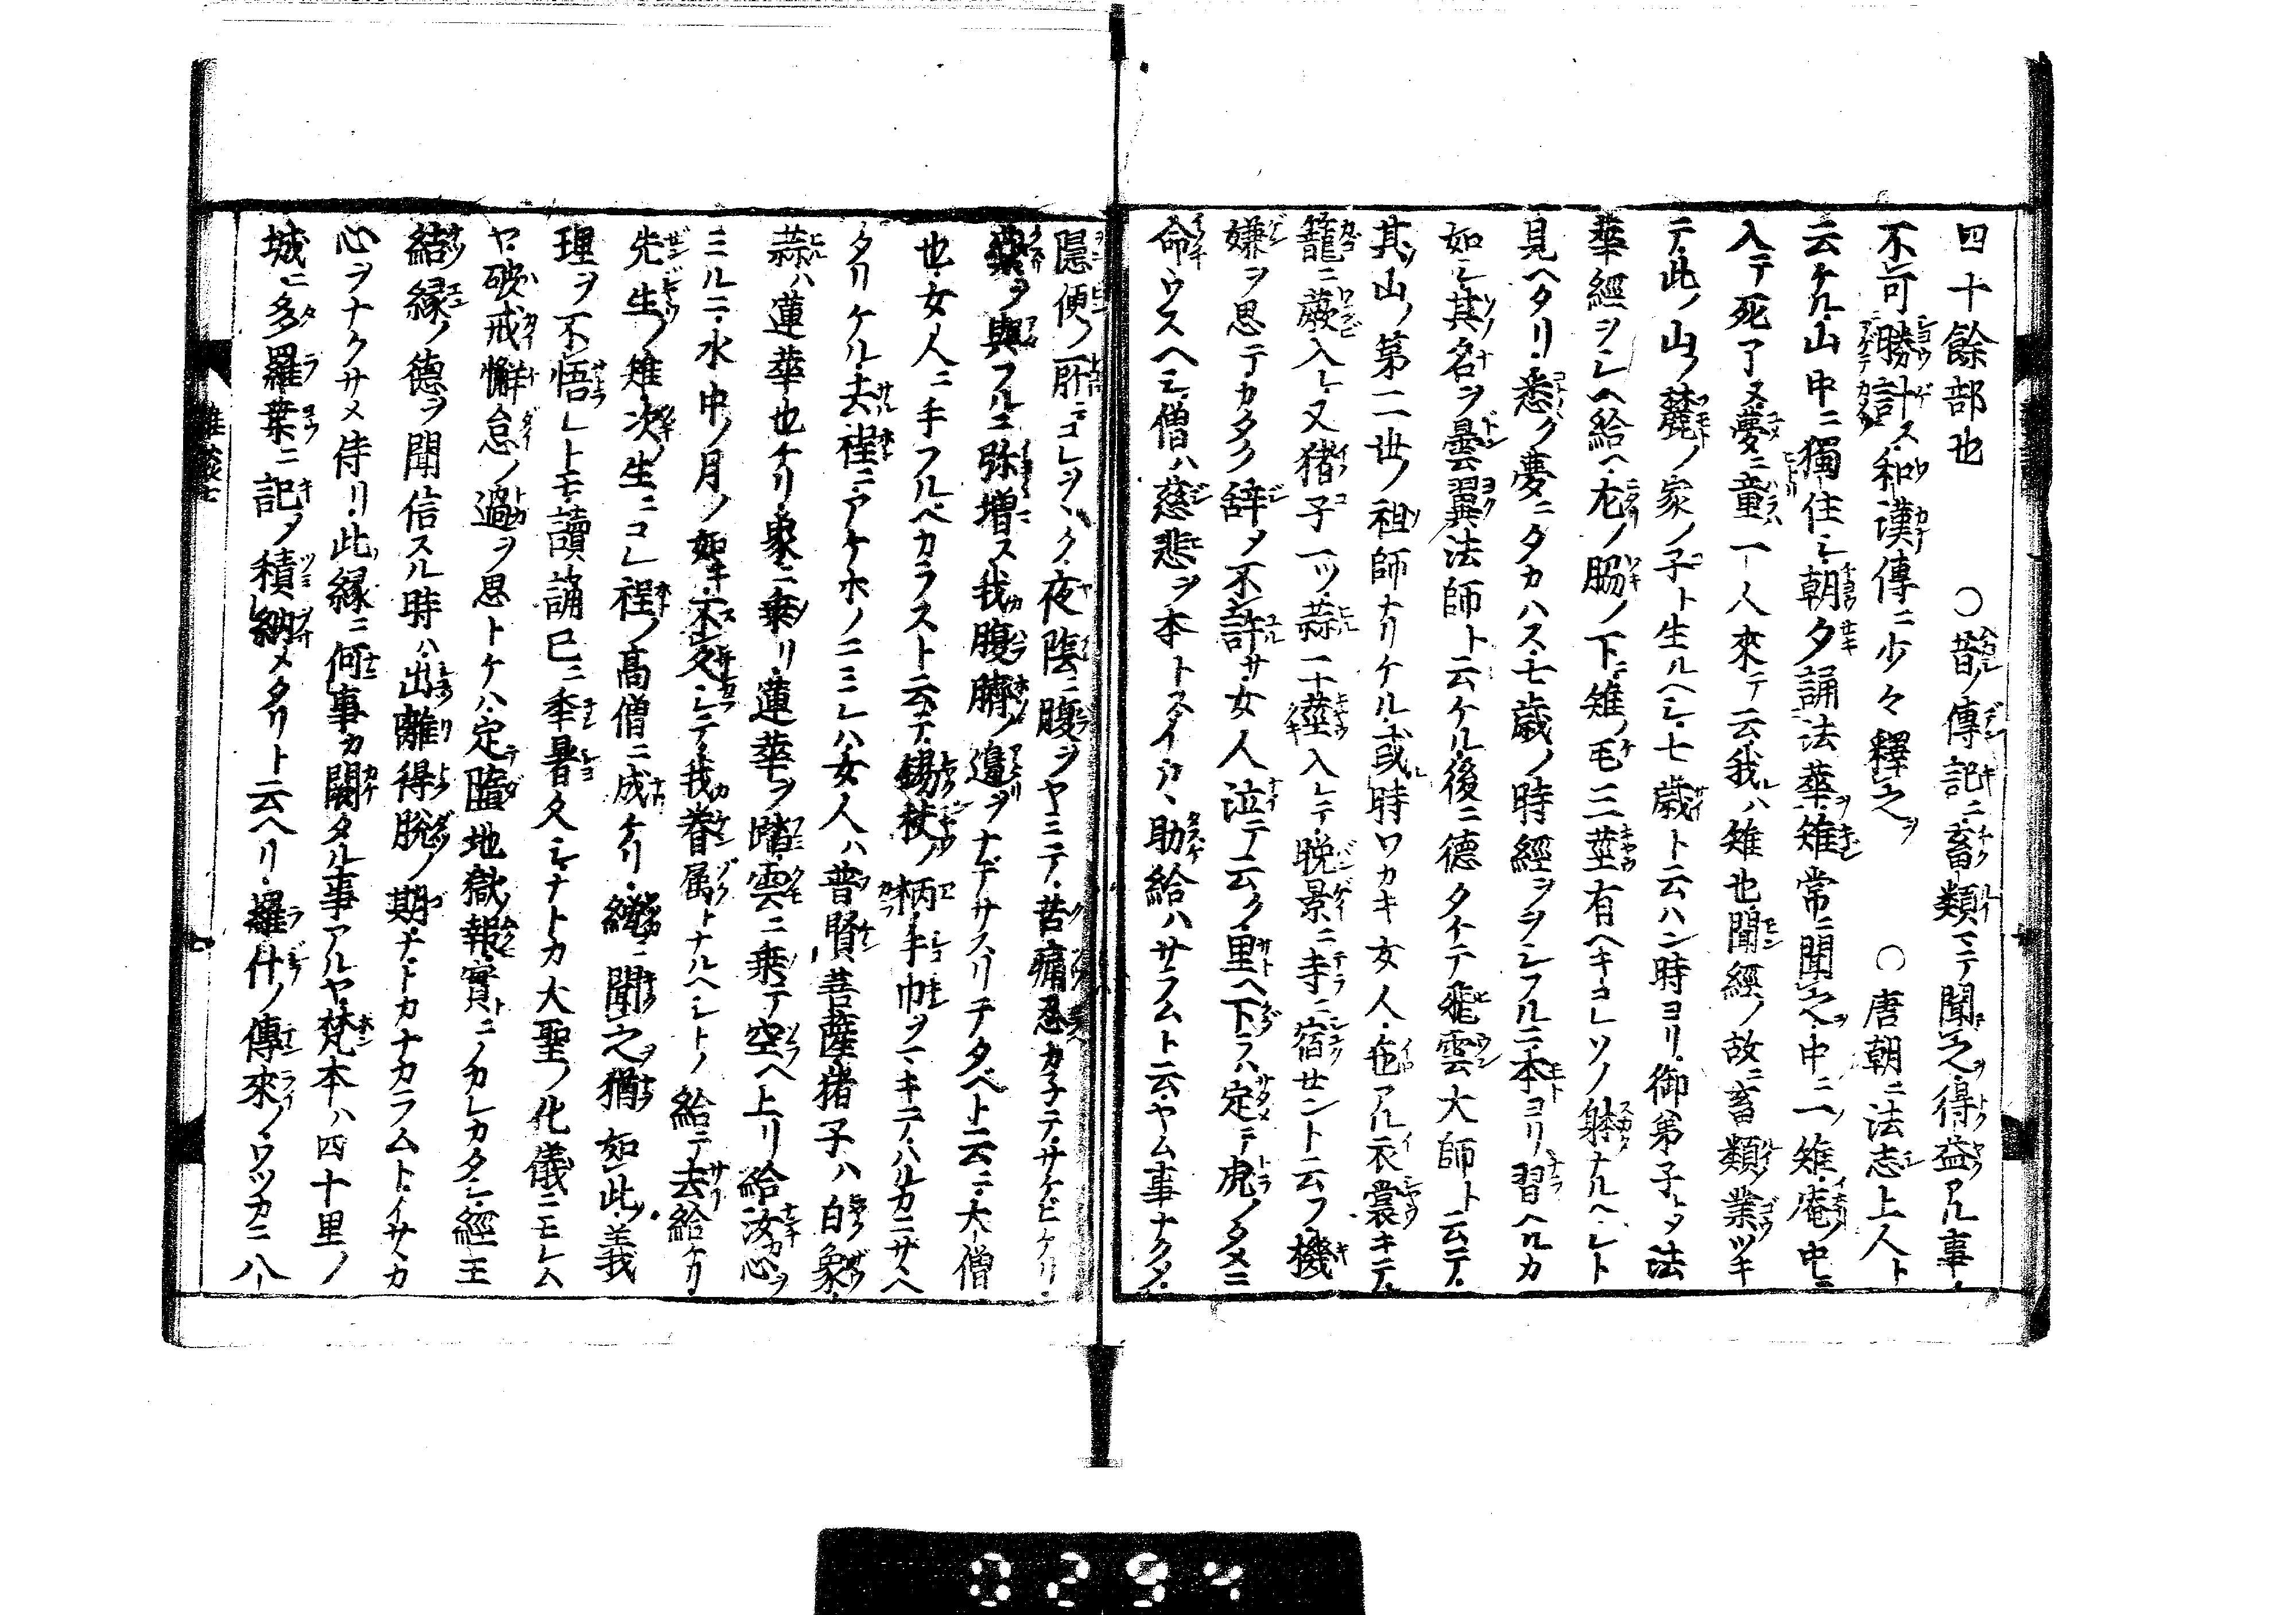 四十餘部也　〇昔ノ傳記ニ畜類マテ聞之得益アル事
不可勝計ス和漢傳ニ少々釋之　〇唐朝ニ法志上人ト
云ケル山中ニ獨住シ朝夕誦法華雉常ニ聞之中ニ一ノ雉庵ノ中ニ
入テ死了又夢ニ童一人來テ云我ハ雉也聞經ノ故ニ畜類ノ業ツキ
テ此ノ山ノ麓ノ家ノ子ト生ルヘシ七歳ト云ハン時ヨリ御弟子トメ法
華經ヲシヘ給ヘ左ノ脇ノ下ニ雉ノ毛三莖有ヘキコレソノ躰ナルヘシト
見ヘタリ悉ク夢ニタカハス七歳ノ時經ヲヲシフルニ本ヨリ習ヘルカ
如シ其名ヲ曇翼法師ト云ケル後ニ德タイテ飛雲大師ト云テ
其山ノ第二世ノ祖師ナリケル或時ワカキ女人色アル衣裳キテ
籠ニ蕨入レ又猪子一ツ蒜二莖入レテ晩景ニ寺ニ宿せント云フ機
嫌ヲ思テカタク辞メ不許サ女人泣テ云ク里ヘ下ラハ定テ虎ノタメニ
命ウスヘシ僧ハ慈悲ヲ本トス助給ハサラムト云ヤム事ナクメ
隱便ノ所ニコレヲヽク夜陰ニ腹ヲヤミテ苦痛忍カ子テサケビケリ
藥ヲ與フルニ弥増ス我腹臍ノ邉ヲナデサスリテタベト云ニ大僧
也女人ニ手フルヘカラスト云テ錫杖ノ柄ニ手巾ヲマキテハルカニサヽヘ
タリケル去程ニアケホノニミレハ女人ハ普賢菩薩猪子ハ白象
蒜ハ蓮華也ケリ象ニ乗リ蓮華ヲ踏雲ニ乗テ空ヘ上リ給汝カ心ヲ
ミルニ水中ノ月ノ如キ不久シテ我眷属トナルヘシトノ給テ去給ケリ
先生ノ雉次ノ生ニコレ程ノ高僧ニ成ケリ纔ニ聞之猶如此義
理ヲ不悟レトモ讀誦已ニ季暑久シナトカ大聖ノ化儀ニモレム
ヤ破戒懈怠ノ過ヲ思トケハ定墮地獄報實ニノカレカタシ經王
結縁ノ德ヲ聞信スル時ハ出離得脱ノ期ナトカナカラムトイサヽカ
心ヲナクサメ侍リ此縁ニ何事カ闕タル事アルヤ梵本ハ四十里ノ
城ニ多羅葉ニ記メ積納メタリト云ヘリ羅什ノ傳來ノワツカニ八